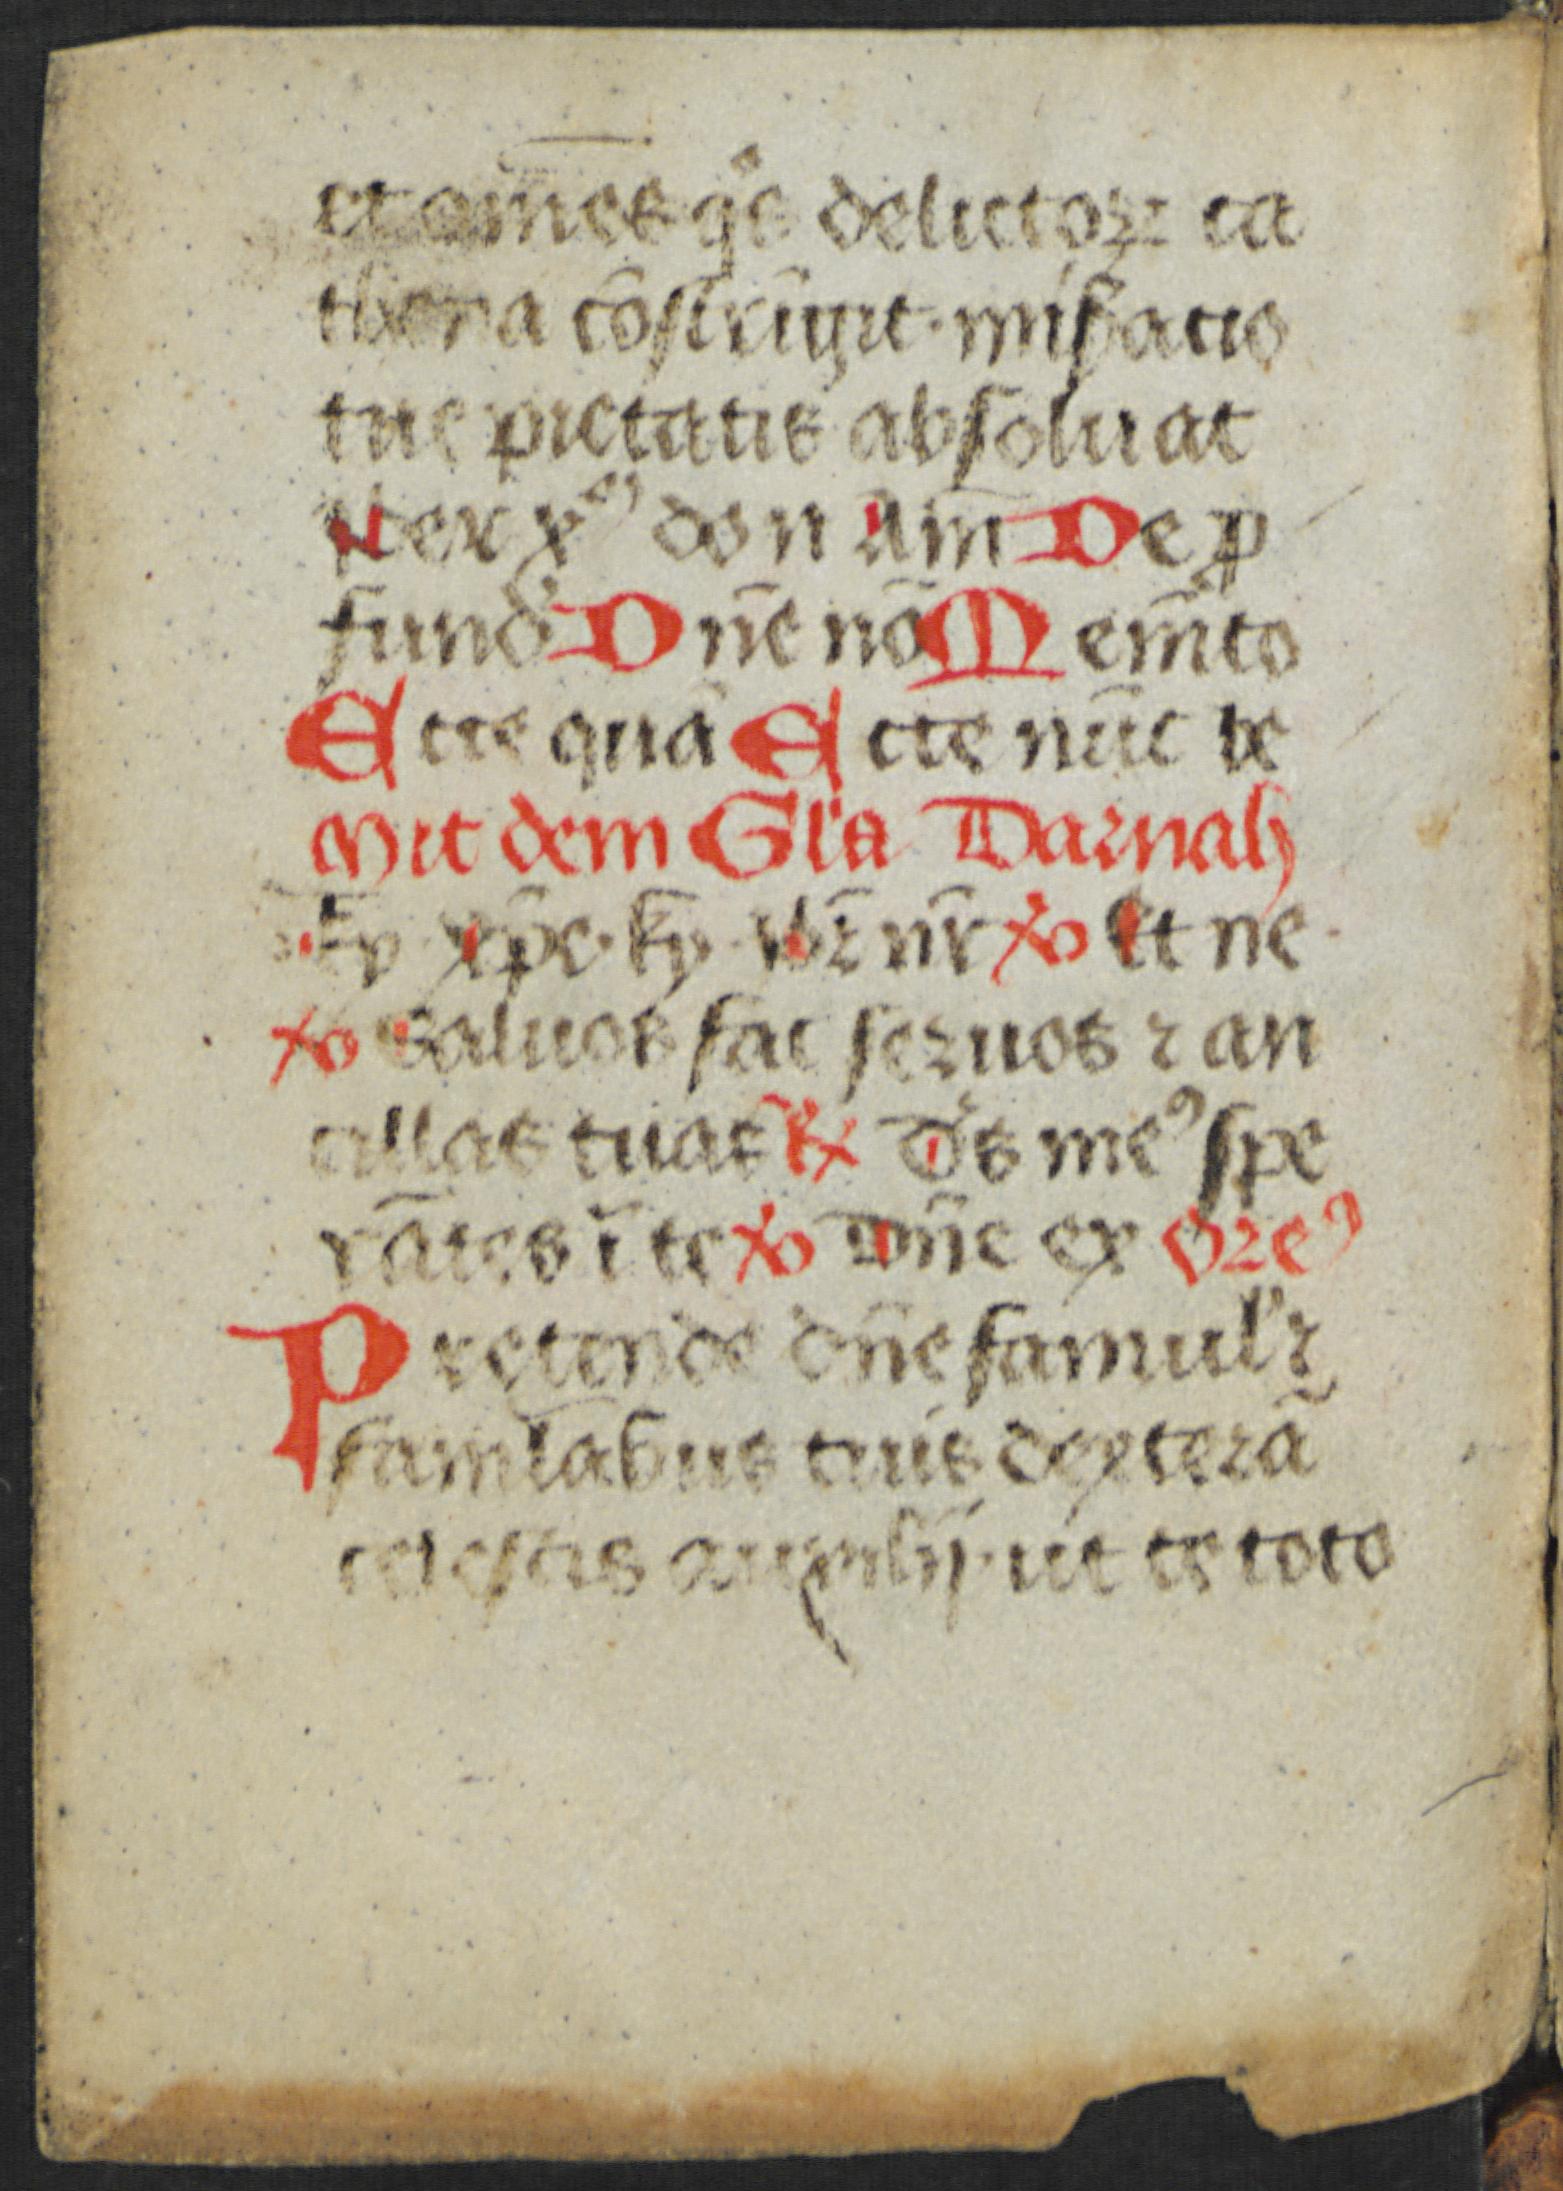 et om̄es qͦs delictoꝝ ca
thena cōstrīgit · miẜatio
tue pietatis absoluat
Per xͫꝰ don̄ Am̄ De ꝓ
fundᷤ Dn̄e nō Mem̄to
Ecce quā Ecce nūc be
Mit dem Gl'a Darnah
ky · xp̄e · ky · Pr̄ nr̄ ℣ Et ne
℣ Saluos fac seruos ⁊ an
cillas tuas ℟ Ds̄ meꝰ spe
rātes ī te ℣ Dn̄e ex Oreꝰ
Pretende dn̄e famul' ⁊
famlābus tuis dexterā
celestis auxilij · ut te toto